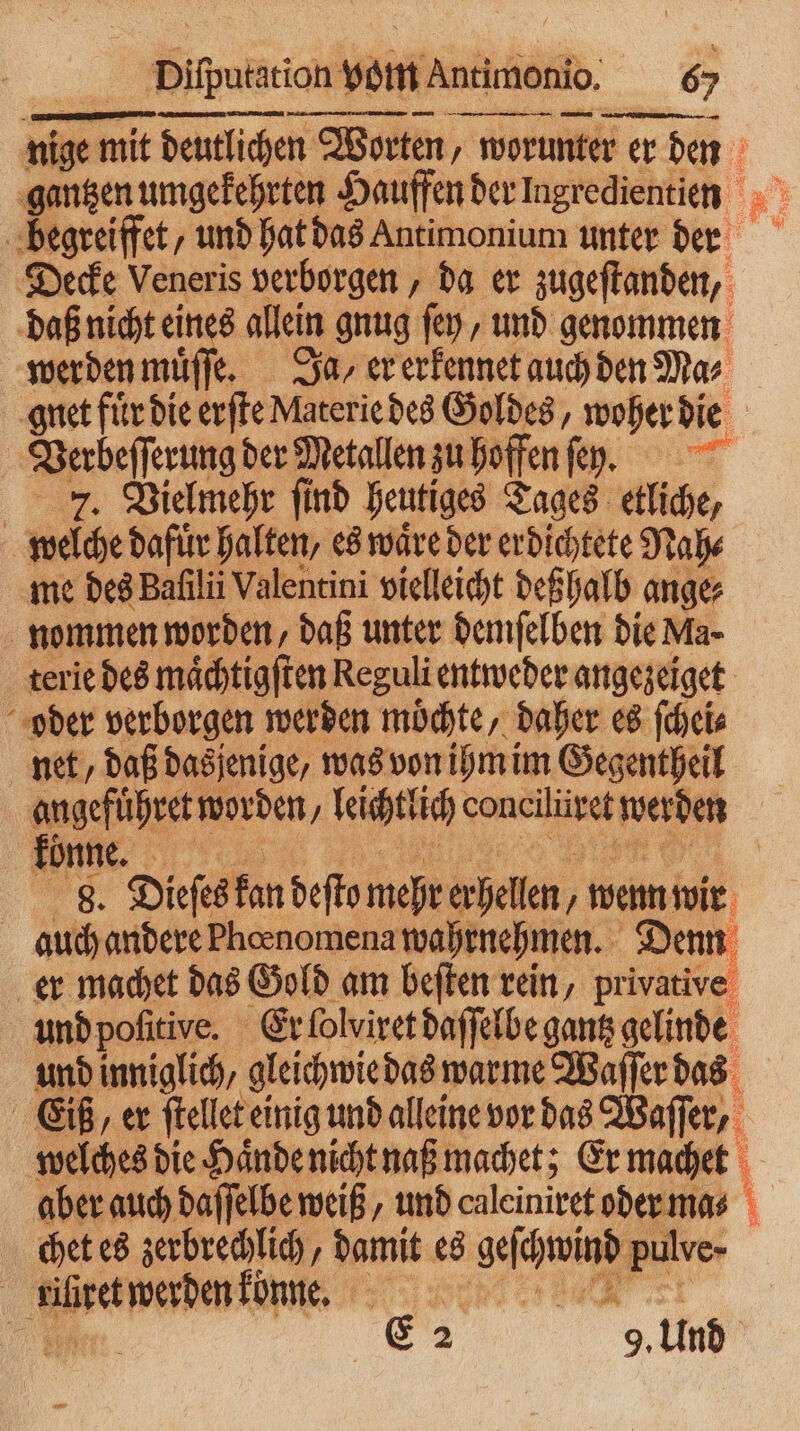 Diſputation vom Antimonio. 67
nige mit deutlichen Worten, worunter er den
gantzen umgekehrten Hauffen der Ingredientien
begreiffet, und hat das Antimonium unter der
Decke Veneris verborgen, da er zugeſtanden,
daß nicht eines allein gnug ſey, und genommen
werden muͤſſe. Ja, er erkennet auch den Ma⸗
gnet fuͤr die erſte Materie des Goldes, woher die
Verbeſſerung der Metallen zu hoffen ſey.
7. Vielmehr ſind heutiges Tages etliche,
welche dafuͤr halten, es waͤre der erdichtete Nah⸗
me des Baſilii Valentini vielleicht deßhalb ange⸗
nommen worden, daß unter demſelben die Ma-
terie des maͤchtigſten Reguli entweder angezeiget
oder verborgen werden moͤchte, daher es ſchei⸗
net, daß dasjenige, was von ihm im Gegentheil
angefuͤhret worden, leichtlich conciliiret werden
koͤnne.
8. Dieſes kan deſto mehr erhellen, wenn wir
auch andere Phœnomena wahrnehmen. Denn
er machet das Gold am beſten rein, privative
und poſitive. Er ſolviret daſſelbe gantz gelinde
und inniglich, gleichwie das warme Waſſer das
Eiß, er ſtellet einig und alleine vor das Waſſer,
welches die Haͤnde nicht naß machet; Er machet
aber auch daſſelbe weiß, und calciniret oder ma⸗
chet es zerbrechlich, damit es geſchwind pulve-
riſiret werden koͤnne.
E 2 9. Und